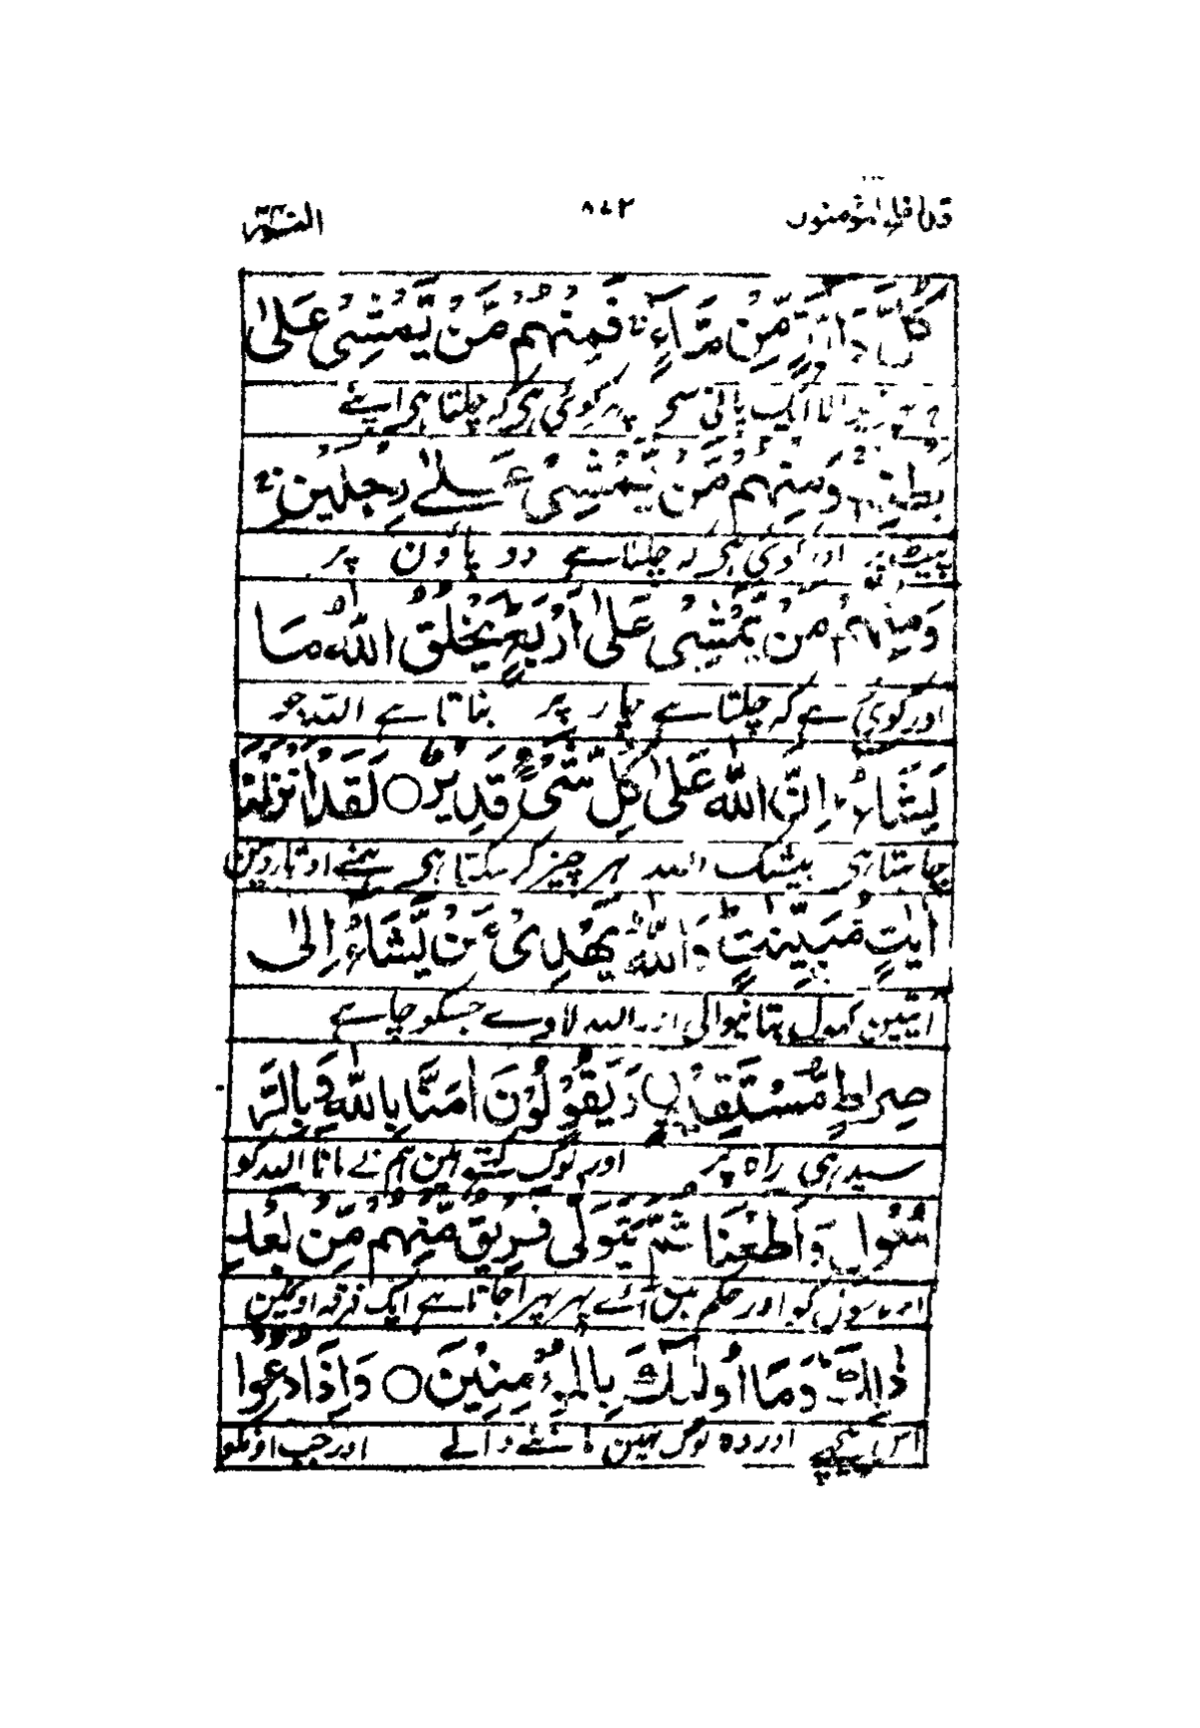 قد افلح المؤمنون ۸۷۲ النور
كُلَّ دَآبَّةٍ مِّنْ مَّآءٍ فَمِنْهُمْ مَّنْ يَّمْشِىْ عَلٰى
ایک پانی سی پہر کوئی ہی کہ چلتا ہی اپنے
بَطْنِهٖ وَمِنْهُمْ مَّنْ يَّمْشِىْ عَلٰے رِجْلَيْنِ
پیٹ پر اور کوئی ہی کہ چلتا ہے دو پاون پر
وَمِنْهُمْ مَّنْ يَّمْشِىْ عَلٰى اَرْبَعٍ يَخْلُقُ اللّٰهُ مَا
اور کوئی ہے کہ چلتا ہے چار پر بناتا ہے اللہ جو
يَشَآءُ اِنَّ اللّٰهَ عَلٰى كُلِّ شَىْءٍ قَدِيْرٌ ○ لَقَدْ اَنْزَلْنَا
چاہتا ہی بیشک اللہ ہر چیز کر سکتا ہی ہمنے اوتاردین
اٰيٰتٍ مُّبَيِّنٰتٍ وَاللّٰهُ يَهْدِىْ مَنْ يَّشَآءُ اِلٰى
آیتین کھول بتانیوالی اور اللہ لاوے جسکو چاہے
صِرَاطٍ مُّسْتَقِيْمٍ وَيَقُوْلُوْنَ اٰمَنَّا بِاللّٰهِ وَبِالرَّ
سیدہی راہ پر اور لوگ کہتے ہین ہم نے مانا اللہ کو
سُوْلِ وَاَطَعْنَا ثُمَّ يَتَوَلّٰى فَرِيْقٌ مِّنْهُمْ مِّنْ بَعْدِ
اور رسول کو اور حکم مین آئے پہر پہرا جاتا ہے ایک فرقہ اونمین
ذٰلِكَ وَمَا اُولٰٓئِكَ بِالْمُؤْمِنِيْنَ ○ وَاِذَا دُعُوْا
اس پیچہے اور وہ لوگ نہین ماننے والے اور جب اونکو